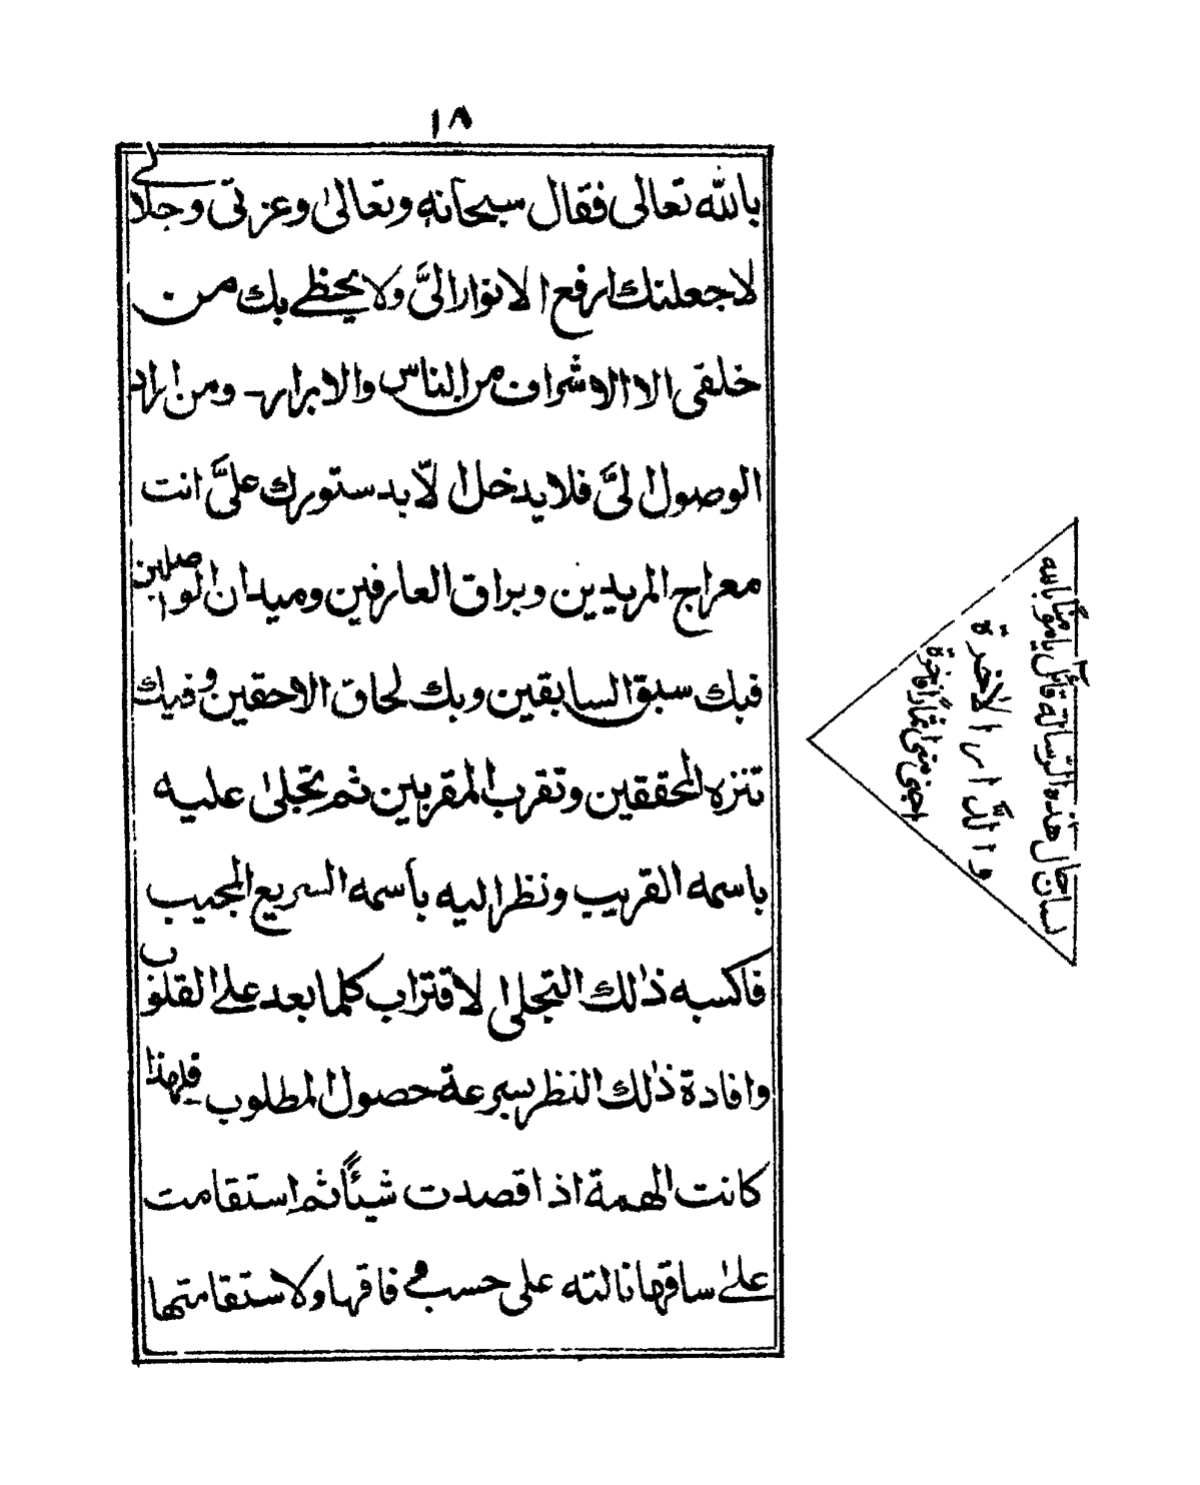 ١٨
بالله تعالى فقال سبحانه وتعالىٰ وعزتى وجلالى
لاجعلنك ارفع الانوار الىَّ ولا يحظى بك من
خلقى الا الاشراف من الناس والابرار ومن اراد
الوصول الىَّ فلا يدخل الّا بدستورك علىَّ انت
معراج المريدين وبراق العارفين وميدان الواصلين
فبك سبق السابقين وبك لحاق الاحقين وفيك
تنزه المحققين وتقرب المقربين ثم تجلىٰ عليه
باسمه القريب ونظر اليه باسمه السريع المجيب
فاكسبه ذٰلك التجلى الاقتراب كلما بعد علىٰ القلوب
وافادة ذٰلك النظر بسرعة حصول المطلوب فلهذا
كانت الهمة اذا قصدت شيئًا ثم استقامت
علىٰ ساقها نالته على حسب وفاقها ولاستقامتها
لسان حال هٰذه الرسالة قائل يا مؤمنًا بالله
والدَّار الاخرة
اجنى منى ثمارًا فاخرة